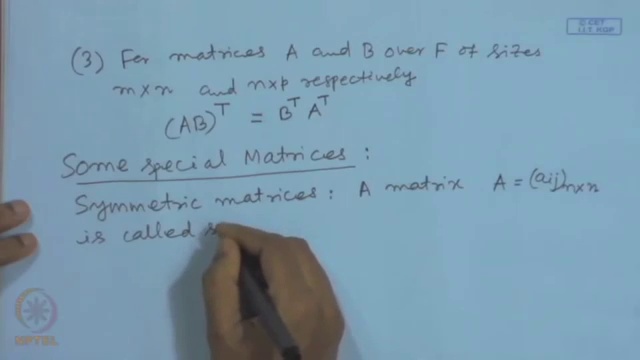 © CET
I.I.T. KGP
(3) For matrices A and B over F of sizes
m×n and n×p respectively
(AB)^T = B^T A^T
Some special Matrices :
Symmetric matrices : A matrix A = (aij)n×n
is called s
NPTEL